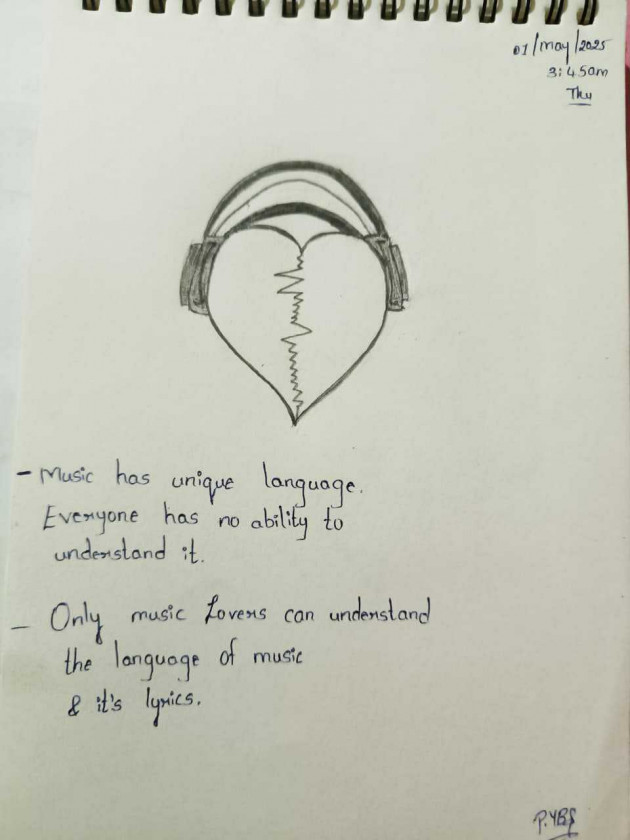 01/May/2025
3:45am
Thu
- Music has unique language.
Everyone has no ability to
understand it.
- Only music Lovers can understand
the language of music
& it's lyrics.